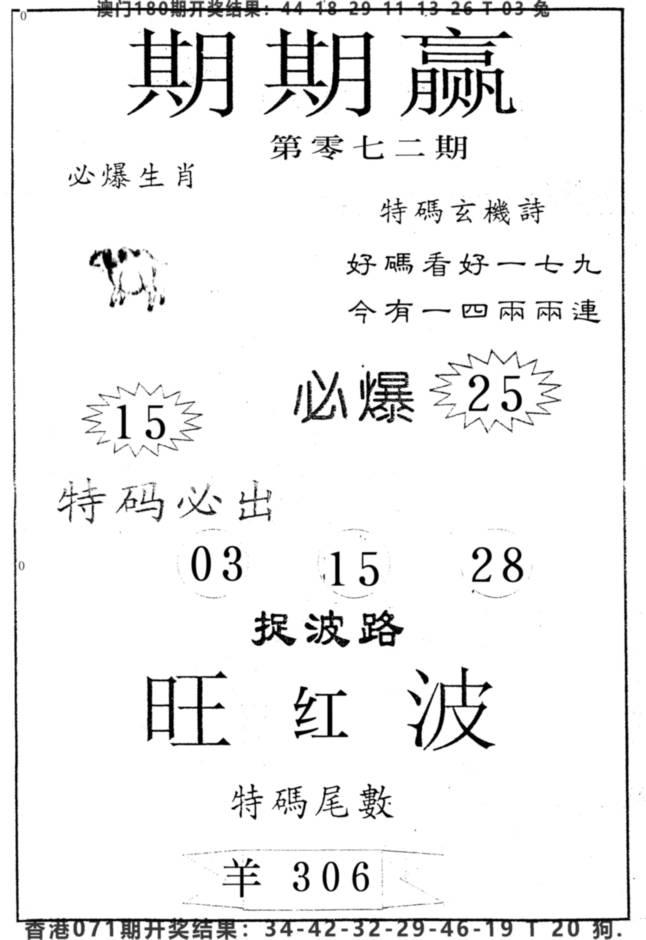 澳门180期开奖结果：44-18-29-11-13-26 T 03 兔
期期赢
第零七二期
必爆生肖
特碼玄機詩
好碼看好一七九
今有一四兩兩連
必爆 25
15
特码必出
03 15 28
捉波路
旺红波
特碼尾數
羊 306
香港071期开奖结果：34-42-32-29-46-19 T 20 狗.